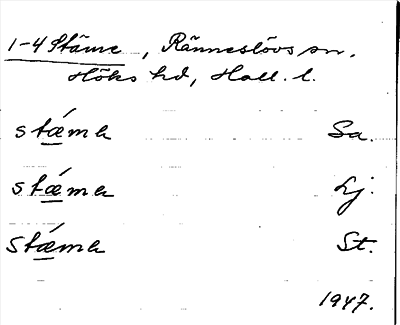 1-4 Stäme, Ränneslövs sn.
Höks hd, Hall. l.
stǽma Sa.
stǽma Lj.
stǽma St.
1947.